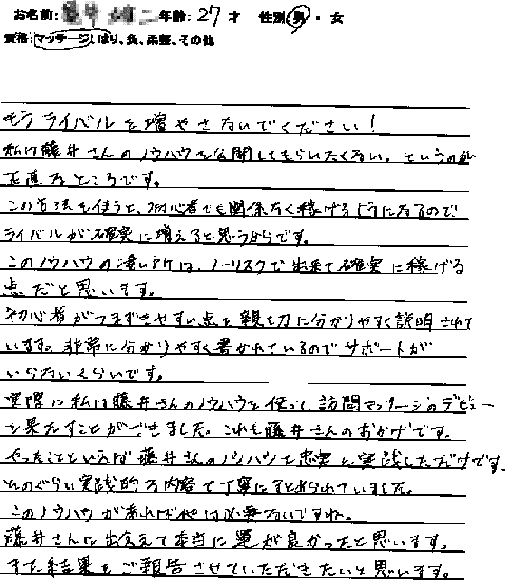 お名前: 二 年齢: 27 才 性別 男 ・ 女
資格: マッサージ、はり、灸、柔整、その他
もうライバルを増やさないでください!
私は藤井さんのノウハウを公開してもらいたくない。というのが
正直なところです。
この方法を使うと、初心者でも関係なく稼げるようになるので
ライバルが確実に増えると思うからです。
このノウハウの凄い所は、ノーリスクで出来て確実に稼げる
点だと思います。
初心者がつまずきやすい点を親切に分かりやすく説明されて
います。非常に分かりやすく書かれているのでサポートが
いらないくらいです。
実際に私は藤井さんのノウハウを使って訪問マッサージのデビュー
を果たすことができました。これも藤井さんのおかげです。
やったことといえば藤井さんのノウハウを忠実に実践しただけです。
そのぐらい実践的な内容で丁寧にまとめられていました。
このノウハウがあれば他は必要ないですね。
藤井さんに出会えて本当に運が良かったと思います。
また結果をご報告させていただきたいと思います。